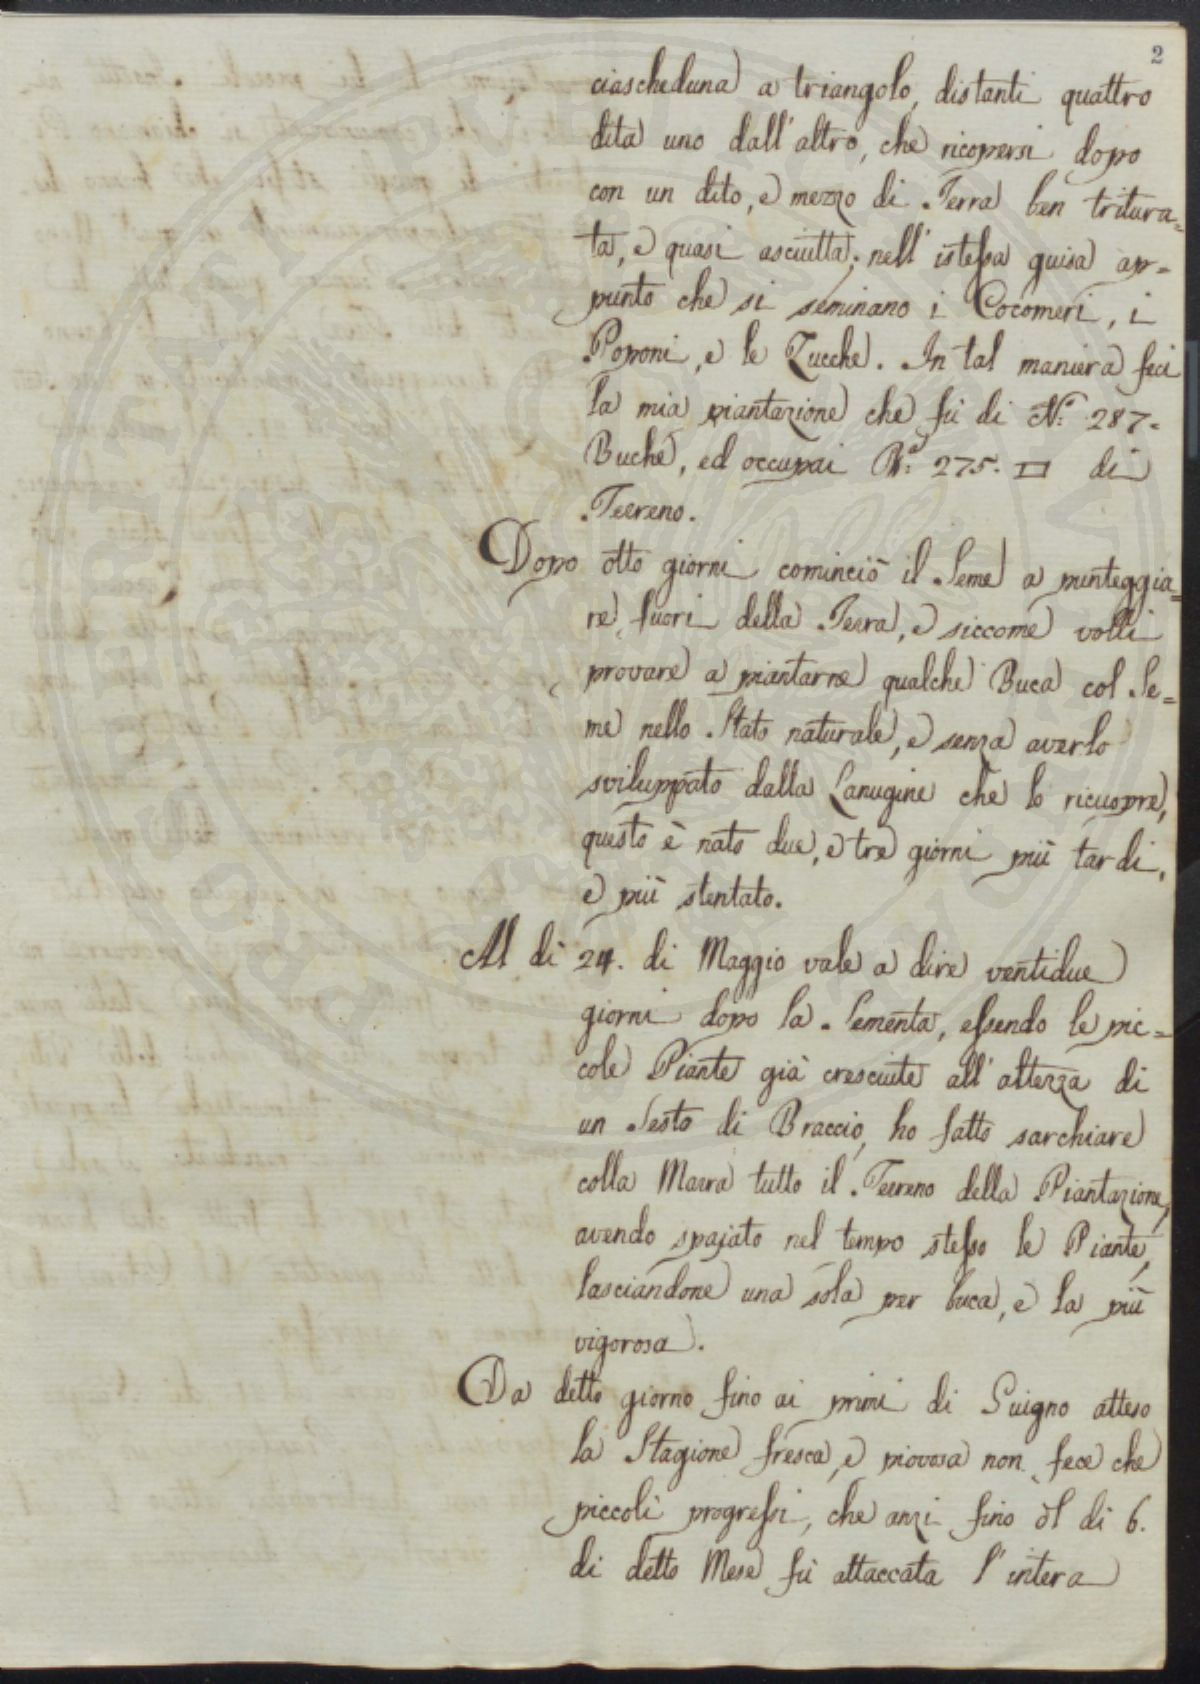 2
ciascheduna a triangolo, distanti quattro
dita uno dall'altro, che ricopersi dopo
con un dito, e mezzo di Terra ben tritura=
ta, e quasi asciutta; nell'istessa guisa ap=
punto che si seminano i Cocomeri, i
Poponi, e le Zucche. In tal maniera feci
la mia piantazione che fù di N.° 287.
Buche, ed occupai B.a 275. □ di
Terreno.
Dopo otto giorni cominciò il Seme a punteggia=
re fuori della Terra, e siccome volli
provare a piantarne qualche Buca col Se=
me nello Stato naturale, e senza averlo
sviluppato dalla Lanugine che lo ricuopre,
questo è nato due, e tre giorni più tardi,
e più stentato.
Al dì 24. di Maggio vale a dire ventidue
giorni dopo la Sementa, essendo le pic=
cole Piante già cresciute all'altezza di
un Sesto di Braccio, ho fatto sarchiare
colla Marra tutto il Terreno della Piantazione,
avendo spajato nel tempo stesso le Piante,
lasciandone una sola per buca, e la più
vigorosa.
Da detto giorno fino ai primi di Guigno atteso
la Stagione fresca, e piovosa non fece che
piccoli progressi, che anzi fino àl di 6.
di detto Mese fù attaccata l'intera